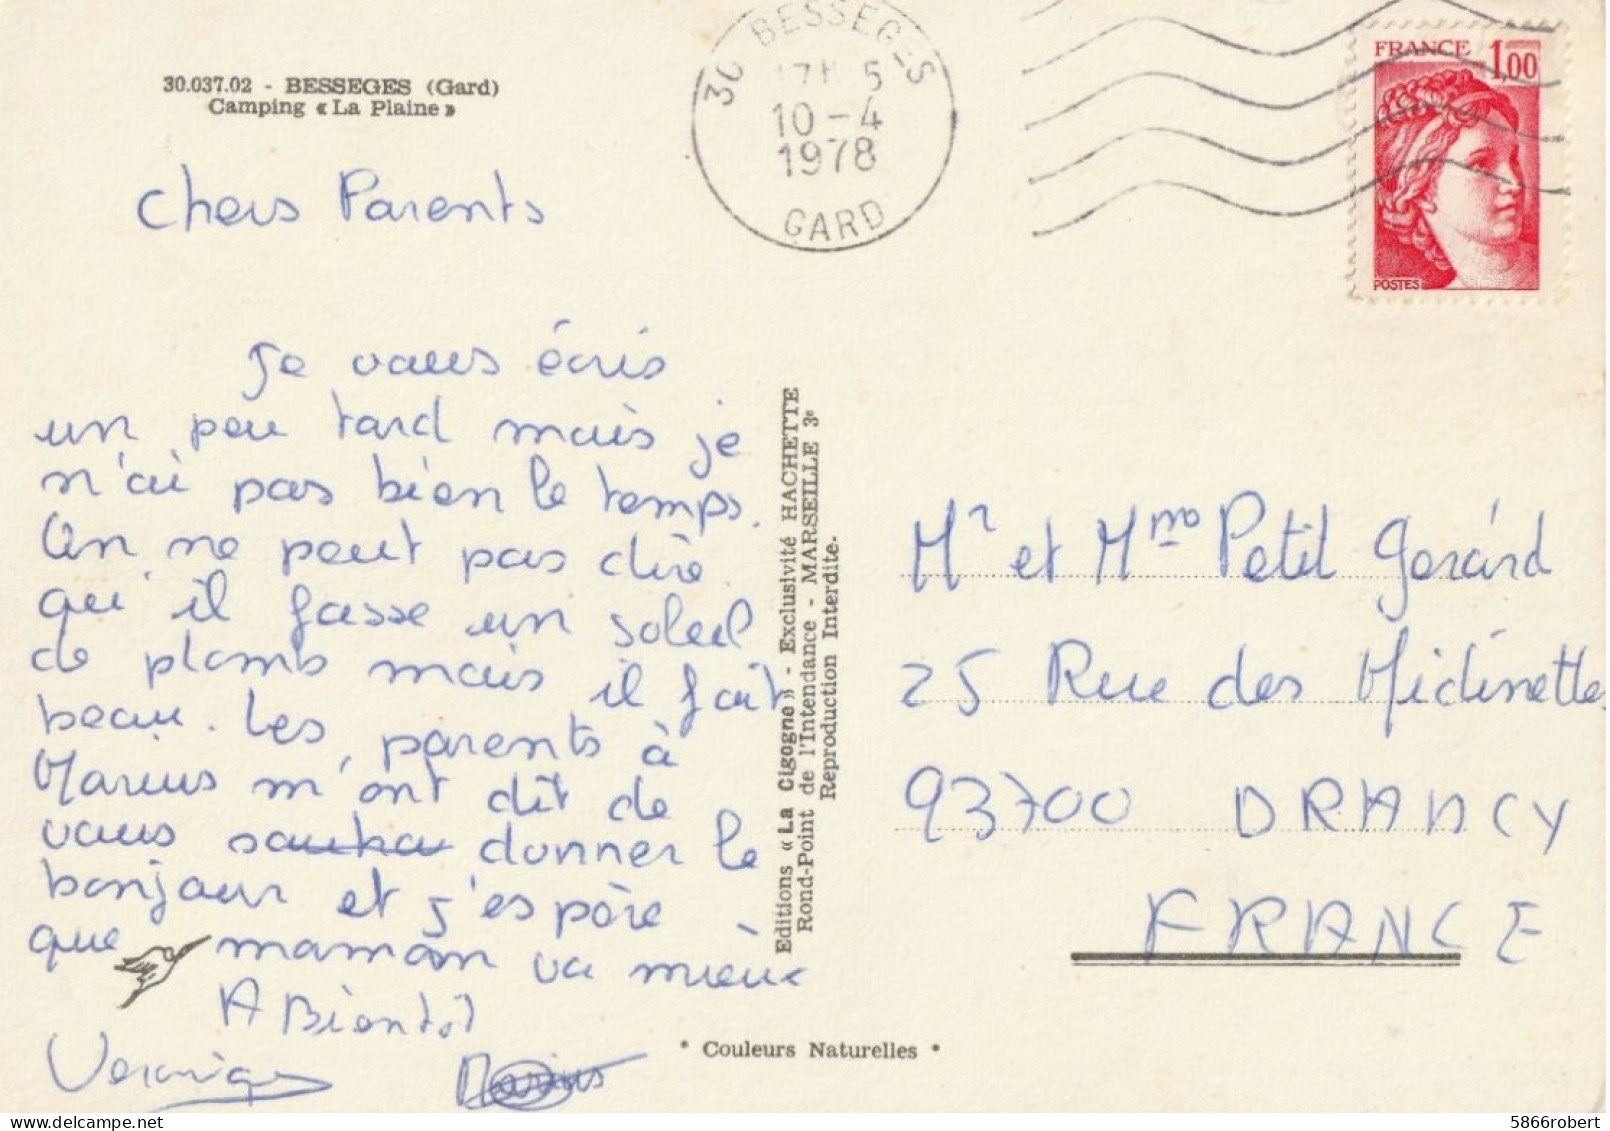 30.037.02 - BESSEGES (Gard)
Camping « La Plaine »
30 BESSEGES
10-4
1978
GARD
FRANCE 1,00
POSTES
Chers Parents
Je vous écris
un peu tard mais je
n'ai pas bien le temps.
On ne peut pas dire
qu'il fasse un soleil
de plomb mais il fait
beau. Les parents à
Marius m'ont dit de
vous donner le
bonjour et j'espère
que maman va mieux
A Bientôt
Veronique Marius
Editions « La Cigogne » - Exclusivité HACHETTE
Rond-Point de l'Intendance - MARSEILLE 3e
Reproduction Interdite.
Mr et Mme Petit Gérard
25 Rue des Midinettes
93700 DRANCY
FRANCE
* Couleurs Naturelles *
5866robert